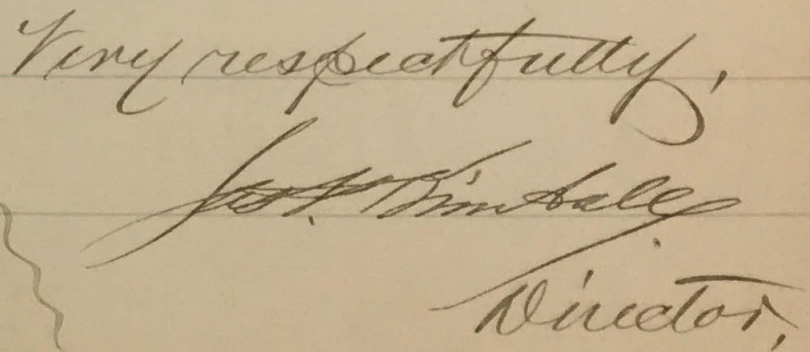 Very respectfully,
Jas. P. Kimball.
Director,